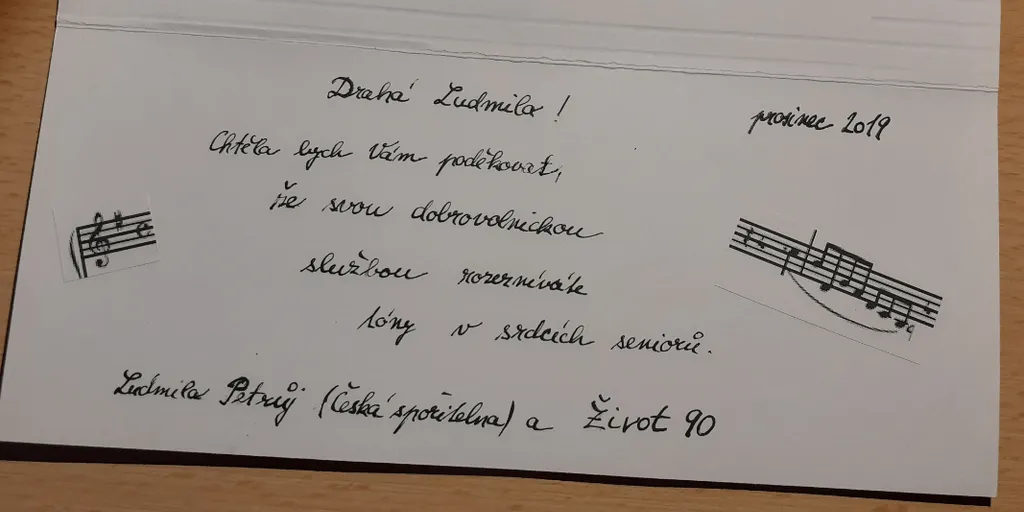 Drahá Ludmila!
prosinec 2019
Chtěla bych Vám poděkovat,
že svou dobrovolnickou
službou rozezníváte
tóny v srdcích seniorů.
Ludmila Petruj (Česká spořitelna) a Život 90